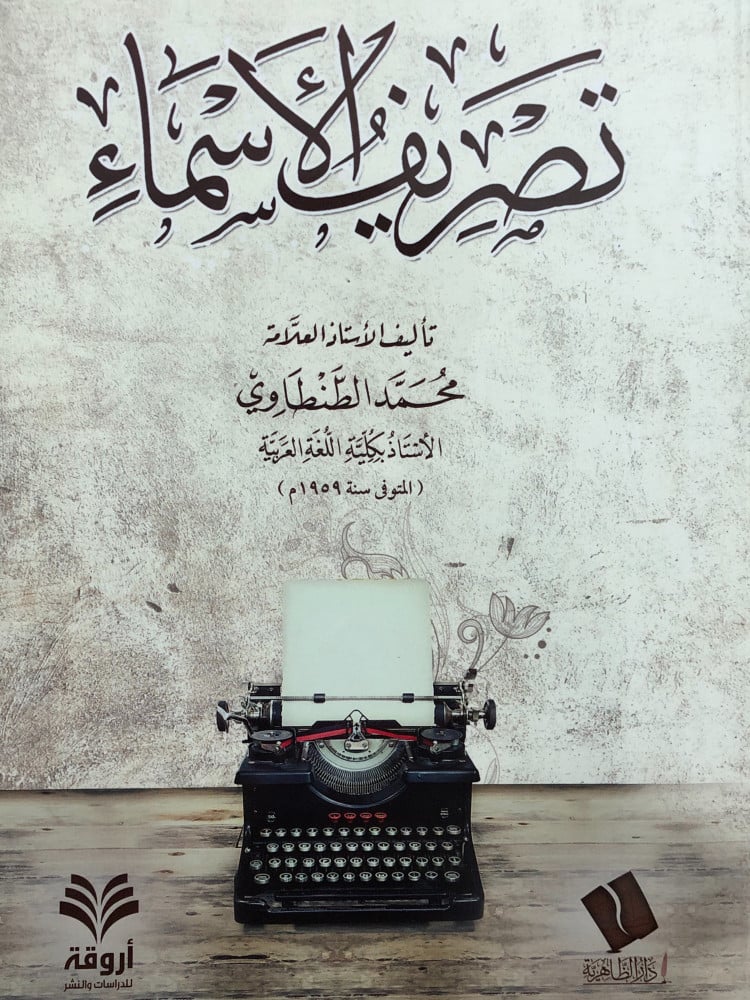 تصريف الأسماء
تأليف الأستاذ العلَّامة
محُمَّد الطَّنْطَاوِي
الأُسْتَاذُ بِكُلِّيَّةِ اللُّغَةِ العَرَبِيَّةِ
(المتوفى سنة ١٩٥٩م)
أروقة
للدراسات والنشر
دار الظاهرية